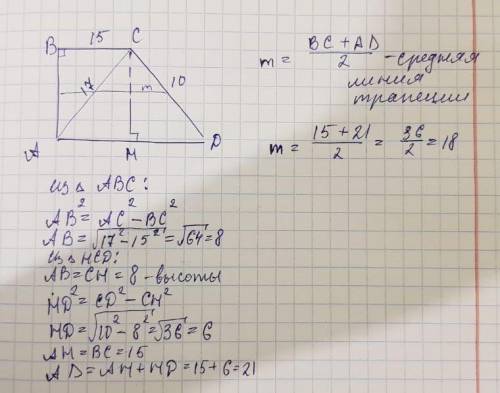 B 15 C
17
m
10
A
H
D
m = BC + AD / 2 - средняя
линия
трапеции
m = 15 + 21 / 2 = 36 / 2 = 18
из Δ ABC:
AB² = AC² - BC²
AB = √17² - 15² = √64 = 8
из Δ HCD:
AB = CH = 8 - высоты
HD² = CD² - CH²
HD = √10² - 8² = √36 = 6
AH = BC = 15
AD = AH + HD = 15 + 6 = 21